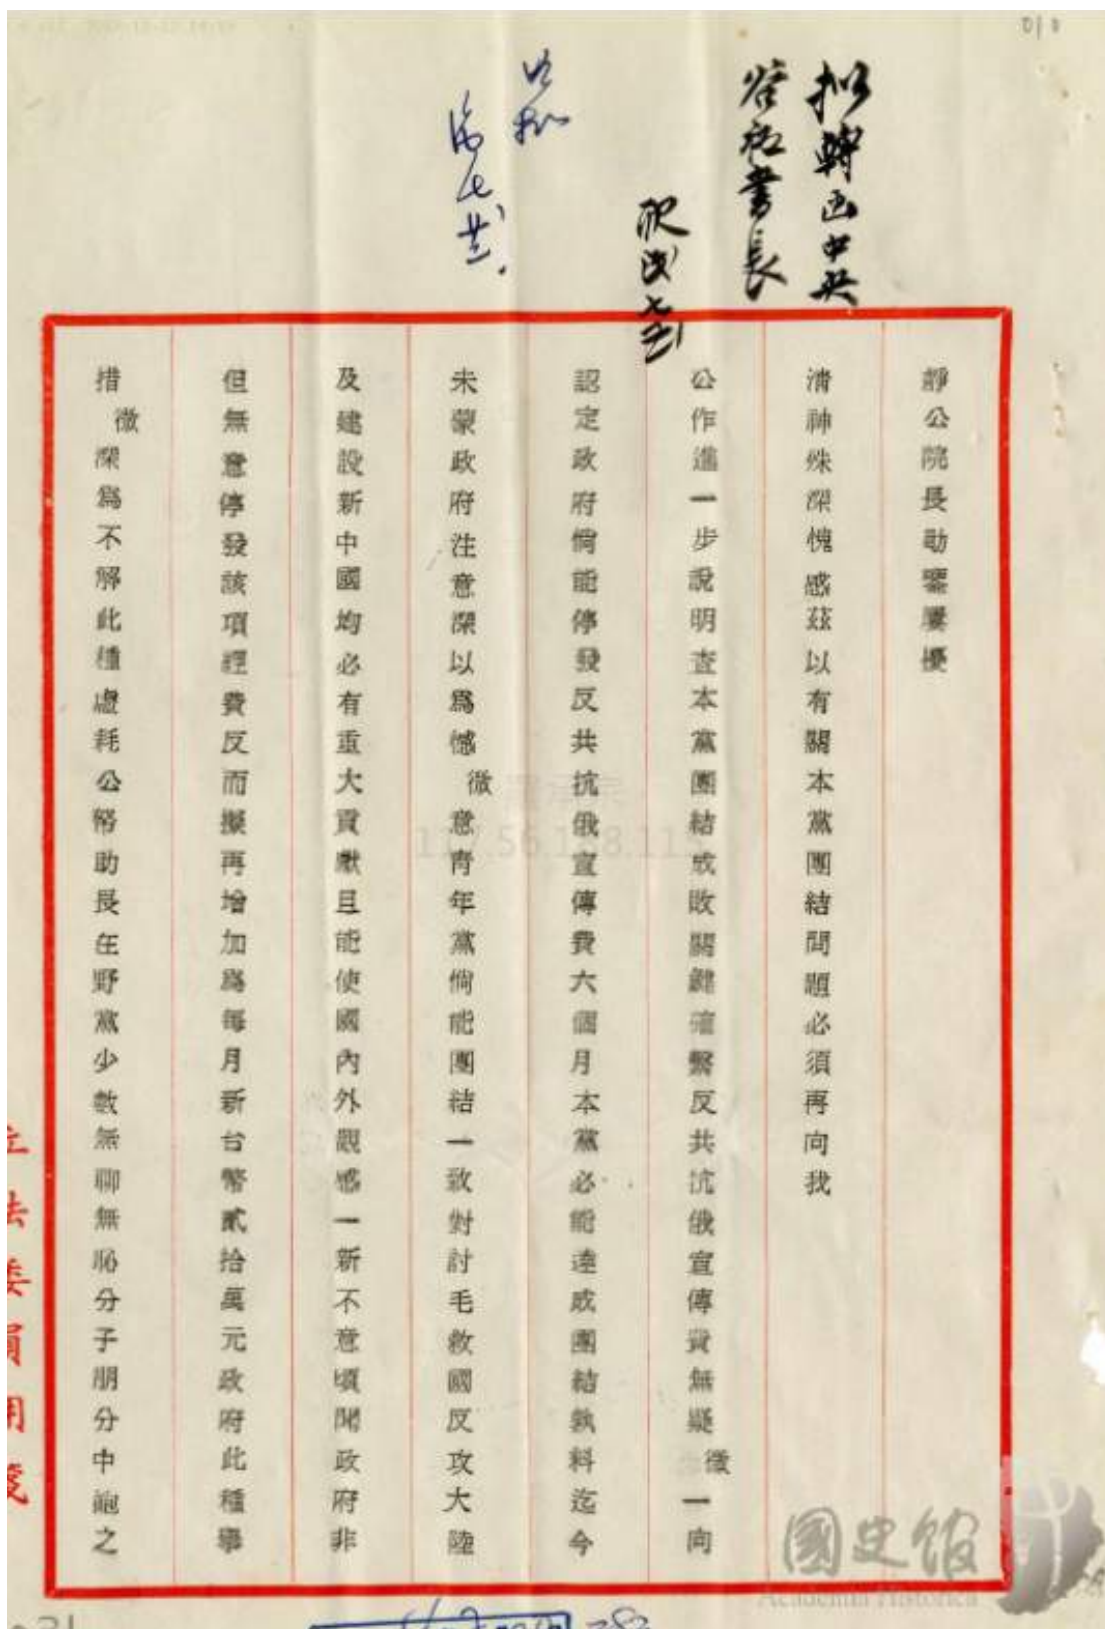 擬轉函中央
秘書長
如擬
靜公院長勛鑒屢擾
清神殊深愧感茲以有關本黨團結問題必須再向我
公作進一步說明查本黨團結成敗關鍵確繫反共抗俄宣傳費無疑微一向
認定政府倘能停發反共抗俄宣傳費六個月本黨必能達成團結孰料迄今
未蒙政府注意深以為憾微意青年黨倘能團結一致對討毛救國反攻大陸
及建設新中國均必有重大貢獻且能使國內外觀感一新不意頃聞政府非
但無意停發該項經費反而擬再增加為每月新台幣貳拾萬元政府此種舉
措微深為不解此種虛耗公帑助長在野黨少數無聊無恥分子朋分中飽之
立法委員用箋
國史館
Academia Historica